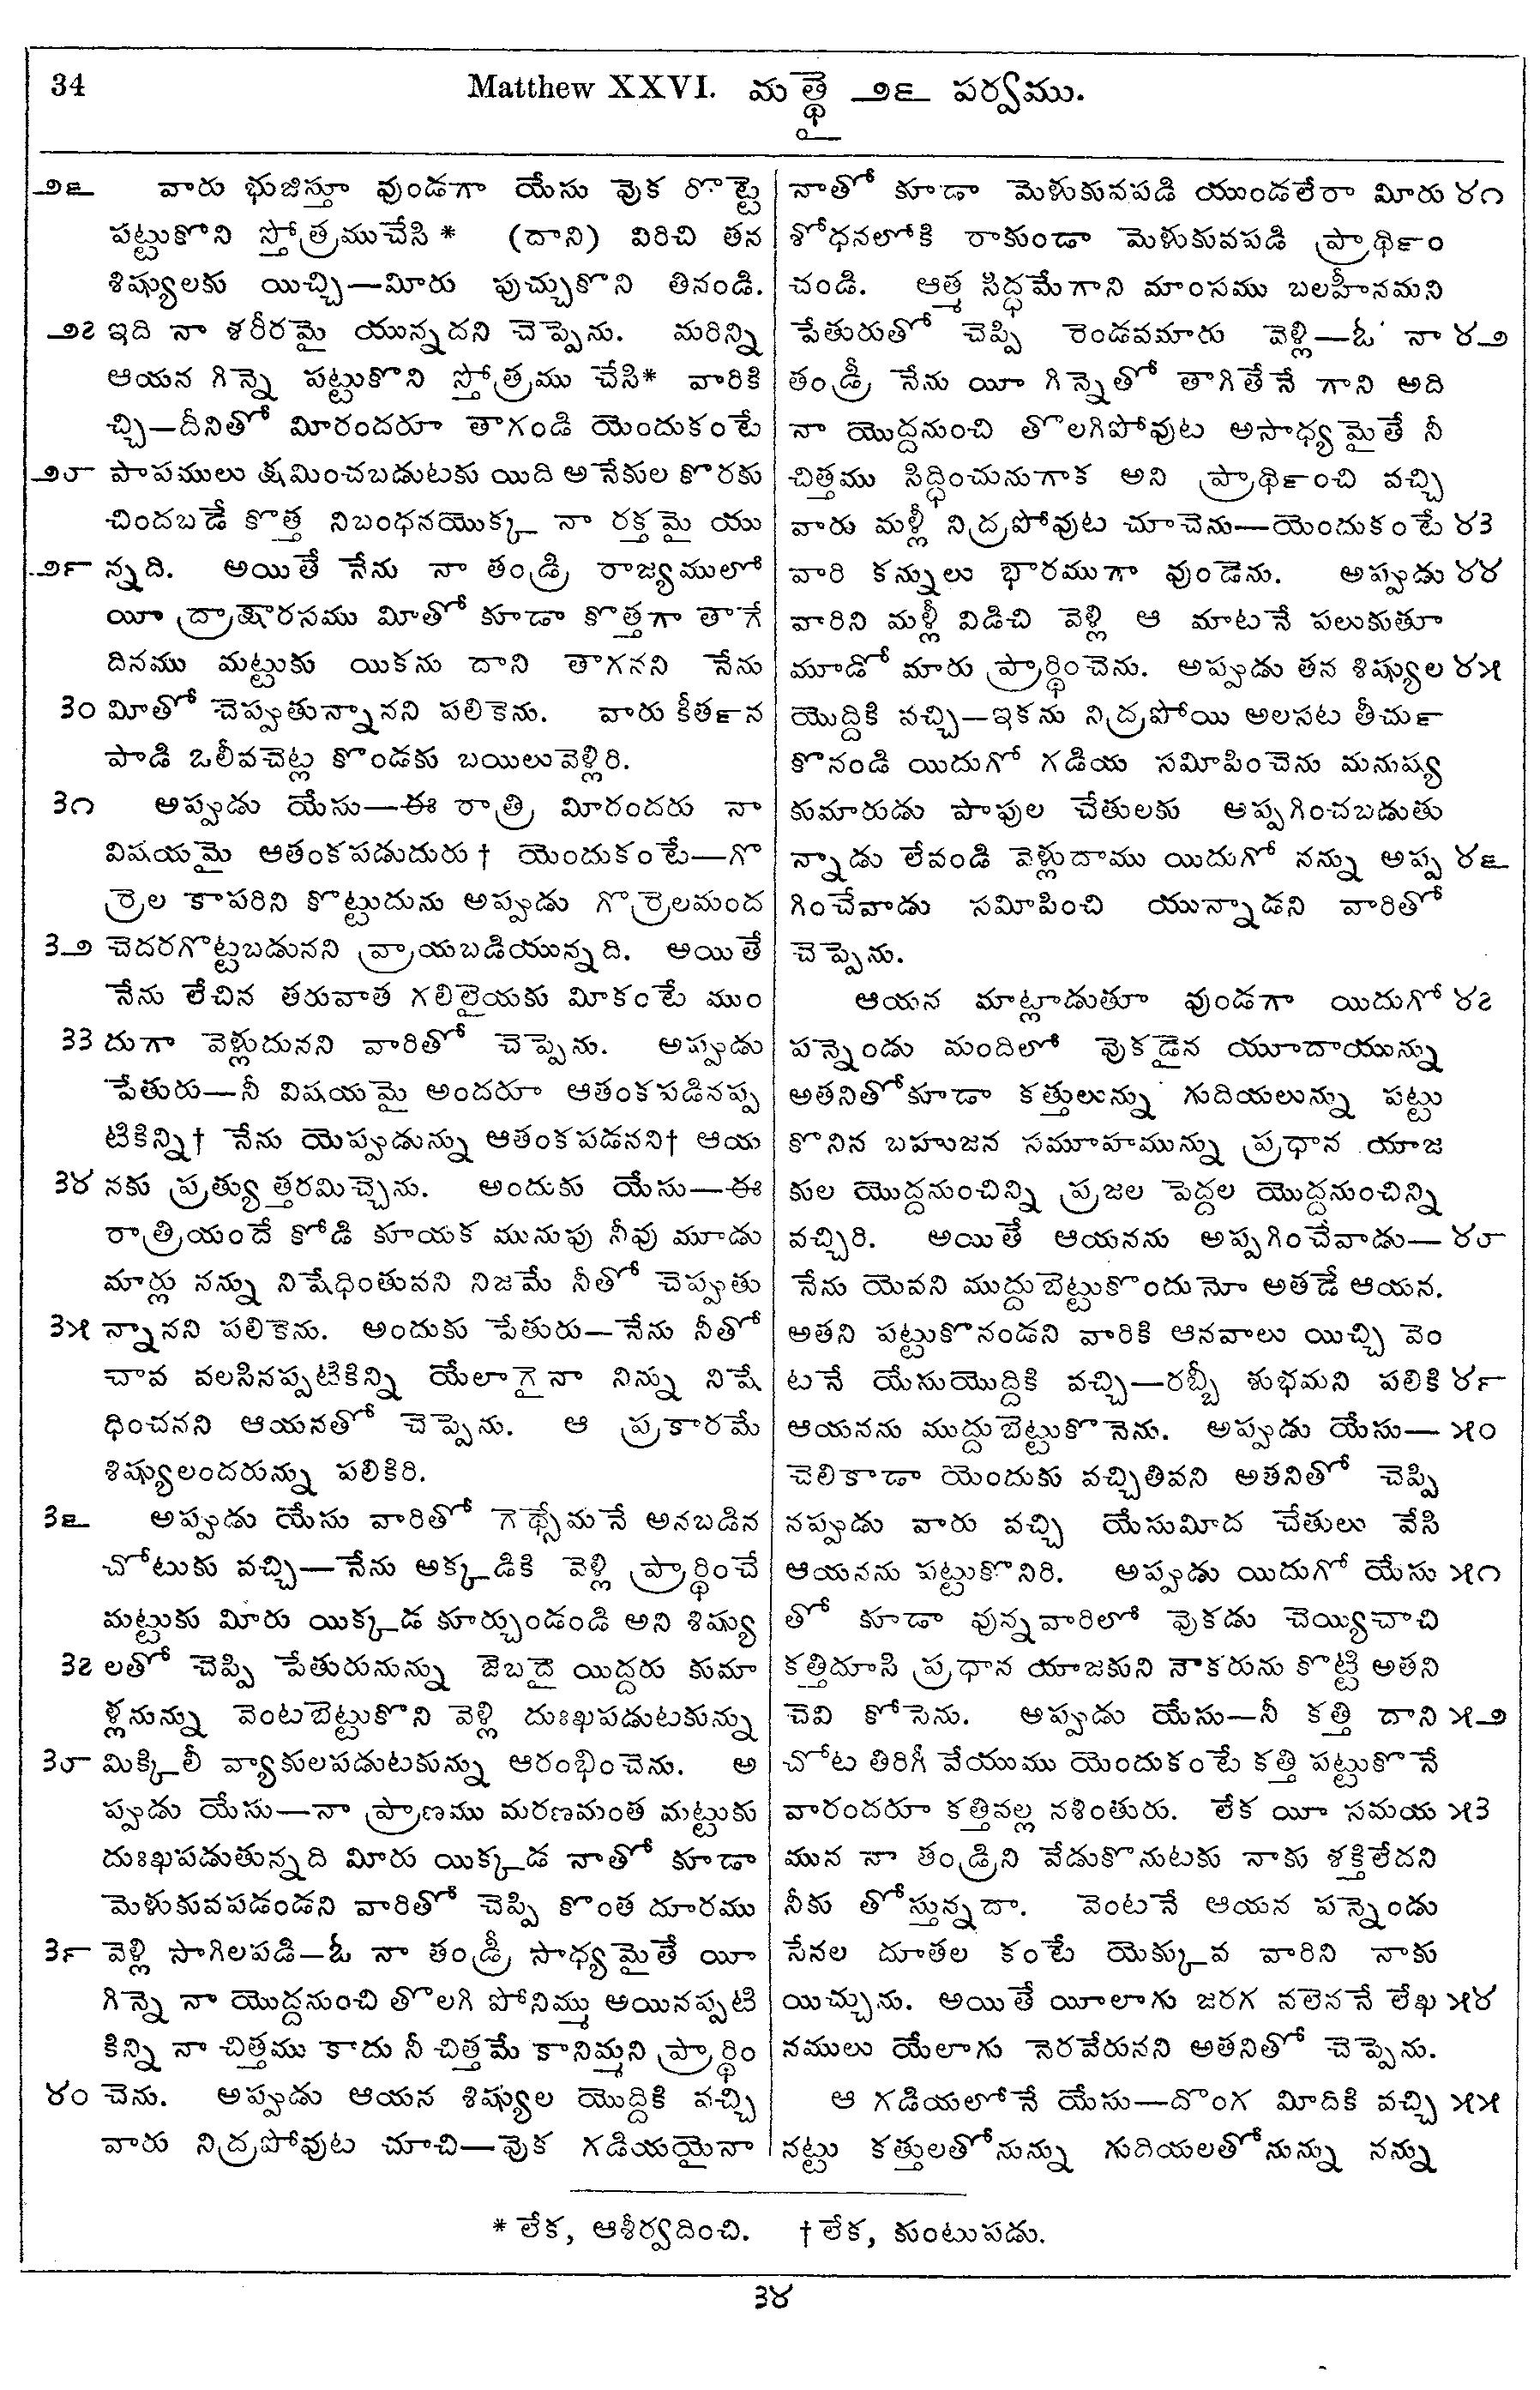 34 Matthew XXVI. మత్థై ౨౬ పర్వము.
౨౬ వారు భుజిస్తూ వుండగా యేసు వుక రొట్టె
పట్టుకొని స్తోత్రముచేసి* (దాని) విరిచి తన
శిష్యులకు యిచ్చి—మీరు పుచ్చుకొని తినండి.
౨౭ ఇది నా శరీరమై యున్నదని చెప్పెను. మరిన్ని
ఆయన గిన్నె పట్టుకొని స్తోత్రము చేసి* వారికి
చ్చి—దీనితో మీరందరూ తాగండి యెందుకంటే
౨౮ పాపములు క్షమించబడుటకు యిది అనేకుల కొరకు
చిందబడే కొత్త నిబంధనయొక్క నా రక్తమై యు
౨౯ న్నది. అయితే నేను నా తండ్రి రాజ్యములో
యీ ద్రాక్షారసము మీతో కూడా కొత్తగా తాగే
దినము మట్టుకు యికను దాని తాగనని నేను
౩౦ మీతో చెప్పుతున్నానని పలికెను. వారు కీత౯న
పాడి ఒలీవచెట్ల కొండకు బయిలువెళ్లిరి.
౩౧ అప్పుడు యేసు—ఈ రాత్రి మీరందరు నా
విషయమై ఆతంకపడుదురు† యెందుకంటే—గొ
ర్రెల కాపరిని కొట్టుదును అప్పుడు గొర్రెలమంద
౩౨ చెదరగొట్టబడునని వ్రాయబడియున్నది. అయితే
నేను లేచిన తరువాత గలిలైయకు మీకంటే ముం
౩౩ దుగా వెళ్లుదునని వారితో చెప్పెను. అప్పుడు
పేతురు—నీ విషయమై అందరూ ఆతంకపడినప్ప
టికిన్ని† నేను యెప్పుడున్ను ఆతంకపడనని† ఆయ
౩౪ నకు ప్రత్యుత్తరమిచ్చెను. అందుకు యేసు—ఈ
రాత్రియందే కోడి కూయక మునుపు నీవు మూడు
మార్లు నన్ను నిషేధింతువని నిజమే నీతో చెప్పుతు
౩౫ న్నానని పలికెను. అందుకు పేతురు—నేను నీతో
చావ వలసినప్పటికిన్ని యేలాగైనా నిన్ను నిషే
ధించనని ఆయనతో చెప్పెను. ఆ ప్రకారమే
శిష్యులందరున్ను పలికిరి.
౩౬ అప్పుడు యేసు వారితో గెథ్సేమనే అనబడిన
చోటుకు వచ్చి—నేను అక్కడికి వెళ్లి ప్రార్థించే
మట్టుకు మీరు యిక్కడ కూర్చుండండి అని శిష్యు
౩౭ లతో చెప్పి పేతురునున్ను జెబదై యిద్దరు కుమా
ళ్లనున్ను వెంటబెట్టుకొని వెళ్లి దుఃఖపడుటకున్ను
౩౮ మిక్కిలీ వ్యాకులపడుటకున్ను ఆరంభించెను. అ
ప్పుడు యేసు—నా ప్రాణము మరణమంత మట్టుకు
దుఃఖపడుతున్నది మీరు యిక్కడ నాతో కూడా
మెళుకువపడండని వారితో చెప్పి కొంత దూరము
౩౯ వెళ్లి సాగిలపడి—ఓ నా తండ్రీ సాధ్యమైతే యీ
గిన్నె నా యొద్దనుంచి తొలగి పోనిమ్ము అయినప్పటి
కిన్ని నా చిత్తము కాదు నీ చిత్తమే కానిమ్మని ప్రార్థిం
౪౦ చెను. అప్పుడు ఆయన శిష్యుల యొద్దికి వచ్చి
వారు నిద్రపోవుట చూచి—వుక గడియయైనా
నాతో కూడా మెళుకువపడి యుండలేరా మీరు ౪౧
శోధనలోకి రాకుండా మెళుకువపడి ప్రాథి౯ం
చండి. ఆత్మ సిద్ధమేగాని మాంసము బలహీనమని
పేతురుతో చెప్పి రెండవమారు వెళ్లి—ఓ నా ౪౨
తండ్రీ నేను యీ గిన్నెతో తాగితేనే గాని అది
నా యొద్దనుంచి తొలగిపోవుట అసాధ్యమైతే నీ
చిత్తము సిద్ధించునుగాక అని ప్రాథి౯ంచి వచ్చి
వారు మళ్లీ నిద్రపోవుట చూచెను—యెందుకంటే ౪౩
వారి కన్నులు భారముగా వుండెను. అప్పుడు ౪౪
వారిని మళ్లీ విడిచి వెళ్లి ఆ మాటనే పలుకుతూ
మూడో మారు ప్రార్థించెను. అప్పుడు తన శిష్యుల ౪౫
యొద్దికి వచ్చి—ఇకను నిద్రపోయి అలసట తీచు౯
కొనండి యిదుగో గడియ సమీపించెను మనుష్య
కుమారుడు పాపుల చేతులకు అప్పగించబడుతు
న్నాడు లేవండి వెళ్లుదాము యిదుగో నన్ను అప్ప ౪౬
గించేవాడు సమీపించి యున్నాడని వారితో
చెప్పెను.
ఆయన మాట్లాడుతూ వుండగా యిదుగో ౪౭
పన్నెండు మందిలో వుకడైన యూదాయున్ను
అతనితోకూడా కత్తులున్ను గుదియలున్ను పట్టు
కొనిన బహుజన సమూహమున్ను ప్రధాన యాజ
కుల యొద్దనుంచిన్ని ప్రజల పెద్దల యొద్దనుంచిన్ని
వచ్చిరి. అయితే ఆయనను అప్పగించేవాడు— ౪౮
నేను యెవని ముద్దుబెట్టుకొందునో అతడే ఆయన.
అతని పట్టుకొనండని వారికి ఆనవాలు యిచ్చి వెం
టనే యేసుయొద్దికి వచ్చి—రబ్బీ శుభమని పలికి ౪౯
ఆయనను ముద్దుబెట్టుకొనెను. అప్పుడు యేసు— ౫౦
చెలికాడా యెందుకు వచ్చితివని అతనితో చెప్పి
నప్పుడు వారు వచ్చి యేసుమీద చేతులు వేసి
ఆయనను పట్టుకొనిరి. అప్పుడు యిదుగో యేసు ౫౧
తో కూడా వున్నవారిలో వుకడు చెయ్యిచాచి
కత్తిదూసి ప్రధాన యాజకుని నౌకరును కొట్టి అతని
చెవి కోసెను. అప్పుడు యేసు—నీ కత్తి దాని ౫౨
చోట తిరిగీ వేయుము యెందుకంటే కత్తి పట్టుకొనే
వారందరూ కత్తివల్ల నశింతురు. లేక యీ సమయ ౫౩
మున నా తండ్రిని వేడుకొనుటకు నాకు శక్తిలేదని
నీకు తోస్తున్నదా. వెంటనే ఆయన పన్నెండు
సేనల దూతల కంటే యెక్కువ వారిని నాకు
యిచ్చును. అయితే యీలాగు జరగ వలెననే లేఖ ౫౪
నములు యేలాగు నెరవేరునని అతనితో చెప్పెను.
ఆ గడియలోనే యేసు—దొంగ మీదికి వచ్చి ౫౫
నట్టు కత్తులతోనున్ను గుదియలతోనున్ను నన్ను
* లేక, ఆశీర్వదించి. † లేక, కుంటుపడు.
౩౪